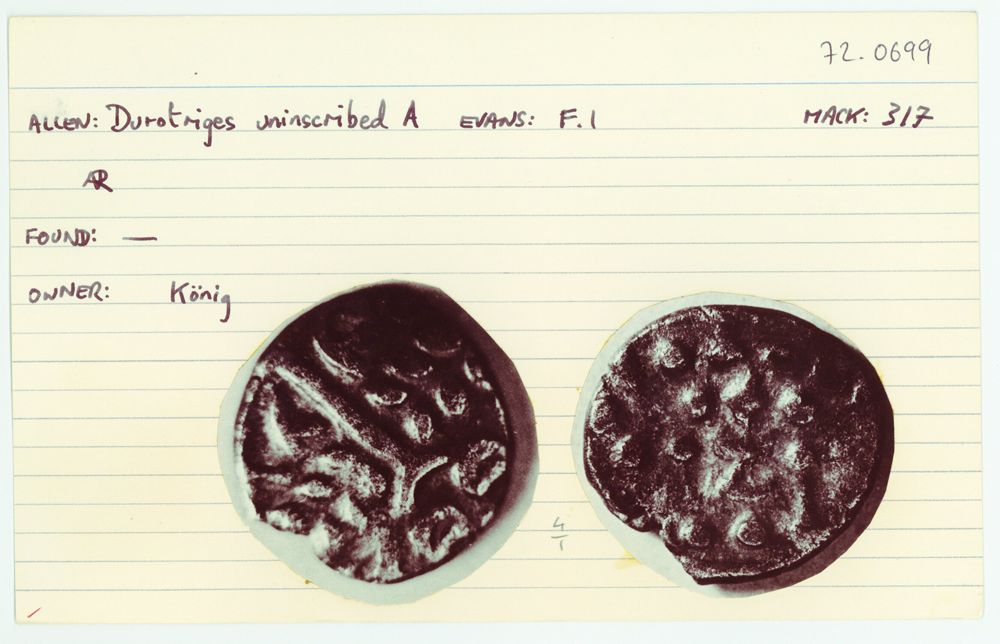 72.0699
ALLEN: Durotriges uninscribed A EVANS: F.1 MACK: 317
AR
FOUND: —
OWNER: König
4
1